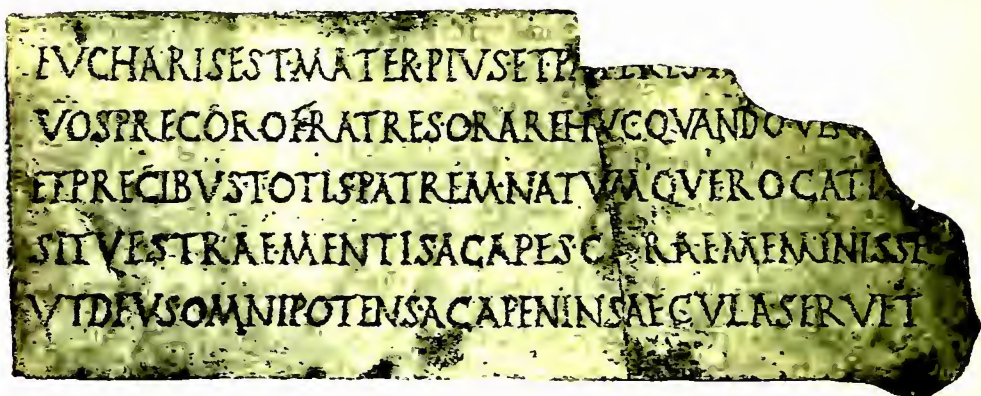 EVCHARIS·EST·MATER·PIVS·ET·PATER EST
VOS PRECOR O FRATRES·ORARE HVC QVANDO·VE
ET PRECIBVS·TOTIS·PATREM·NATVMQVE ROGATI
SIT VESTRAE·MENTIS AGAPES·C RAE MEMINISSE
VT DEVS OMNIPOTENS AGAPEN IN SAECVLA SERVET